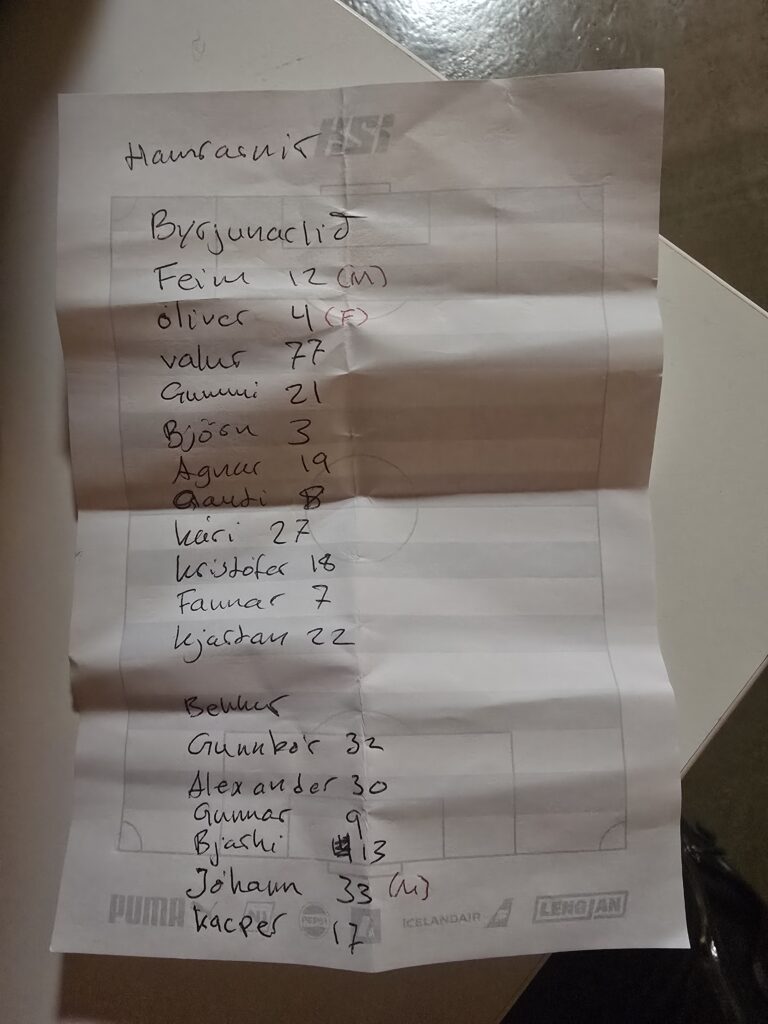 Hamrarnir
KSÍ
Byrjunarlið
Feim 12 (M)
óliver 4 (F)
valur 77
Gummi 21
Björn 3
Agnar 19
Gauti 8
kári 27
kristófer 18
Fannar 7
kjartan 22
Bekkur
Gunnþór 32
Alexander 30
Gunnar 9
Bjarki 13
Jóhann 33 (M)
kacper 17
PUMA
PEPSI
ICELANDAIR
LENGJAN